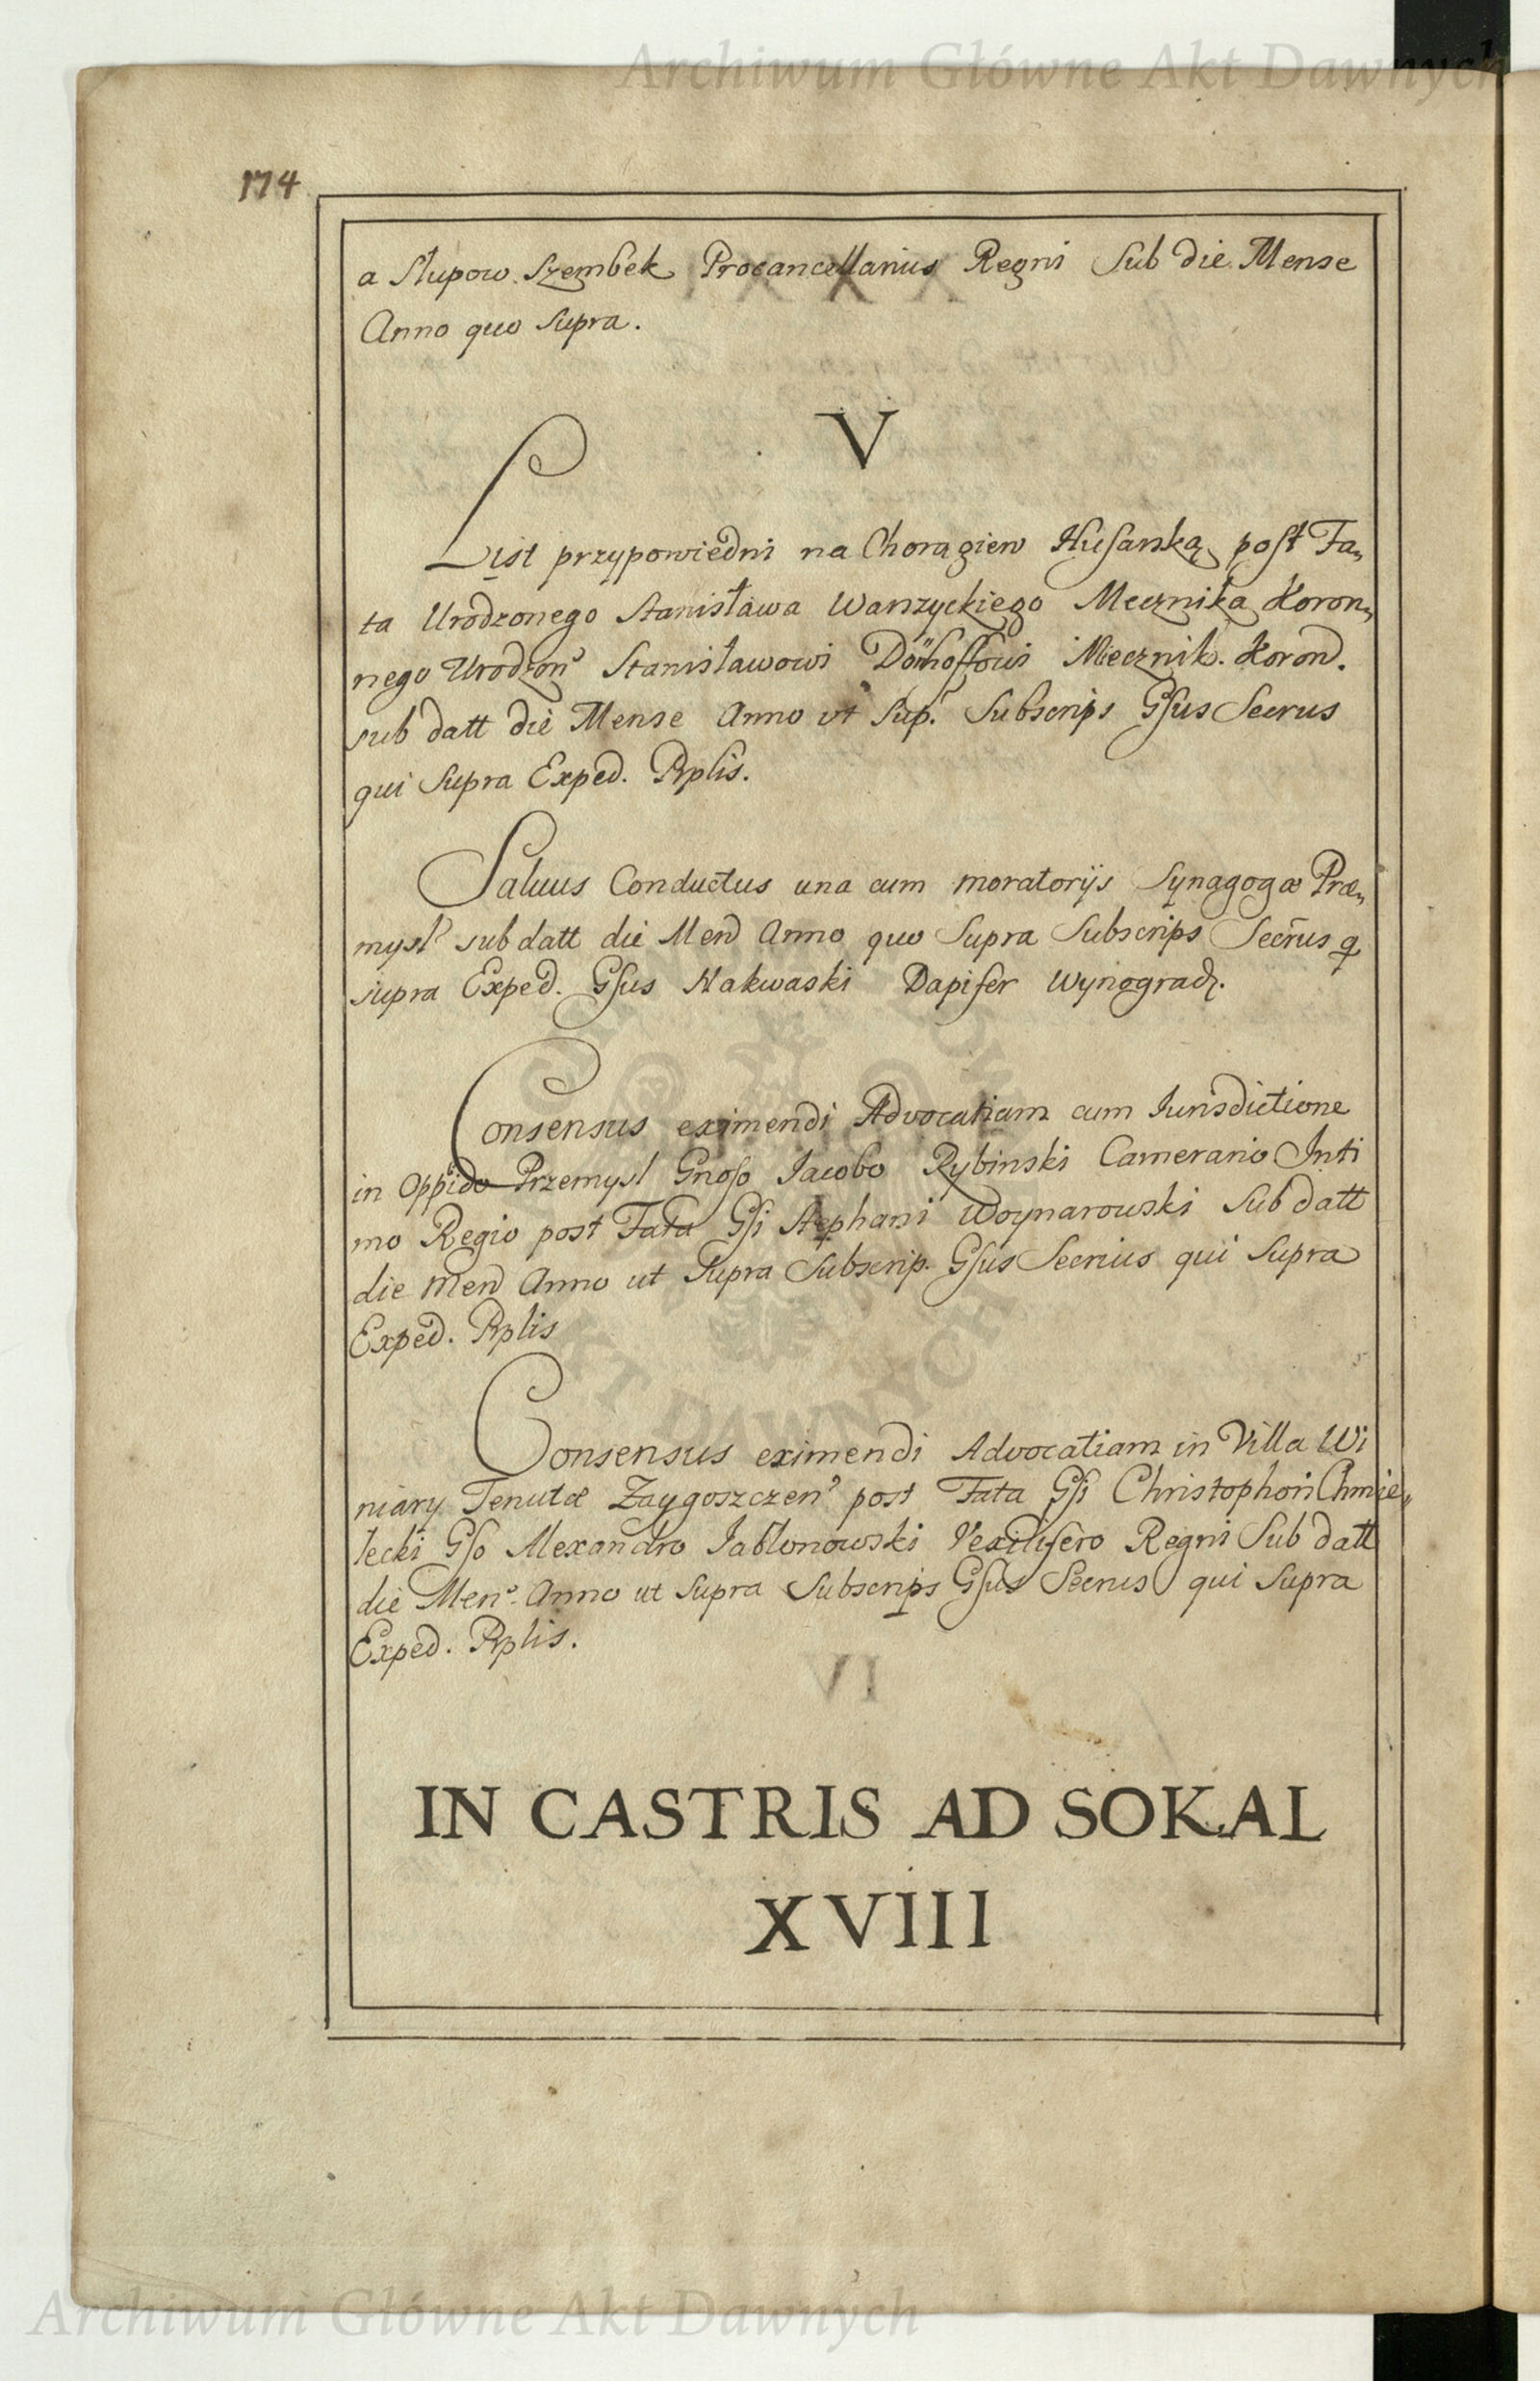 Archiwum Główne Akt Dawnych
174
a Słupow. Szembek Procancellarius Regni Sub die Mense
Anno quo Supra.
V
List przypowiedni na Chorągiew Husarską post Fa„
ta Urodzonego Stanisława Warszyckiego Miecznika Koron„
nego Urodzon? Stanisławowi Dönhoffowi Miecznik. Koron.
sub datt die Mense Anno ut Sup. Subscrips Gsus Secrus
qui Supra Exped. Rplis.
Saluus Conductus una cum moratorijs Synagogæ Præ„
mysl? sub datt die Men Anno quo Supra Subscrips Secrus q
supra Exped. Gsus Nakwaski Dapifer Wynogradz.
Consensus eximendi Advocatiam cum Iurisdictione
in Oppido Przemysl Gnoso Iacobo Rybinski Camerario Inti
mo Regio post Fata Gsi Stephani Woynarowski Sub datt
die Men Anno ut Supra Subscrip. Gsus Secrius qui Supra
Exped. Rplis
Consensus eximendi Advocatiam in Villa Wi
niary Tenutæ Zaygoszczen? post Fata Gsi Christophori Chmie„
lecki Gso Alexandro Iabłonowski Vexillifero Regni Sub datt
die Men? Anno ut Supra Subscrips Gsus Secrus qui Supra
Exped. Rplis.
IN CASTRIS AD SOKAL
XVIII
Archiwum Główne Akt Dawnych